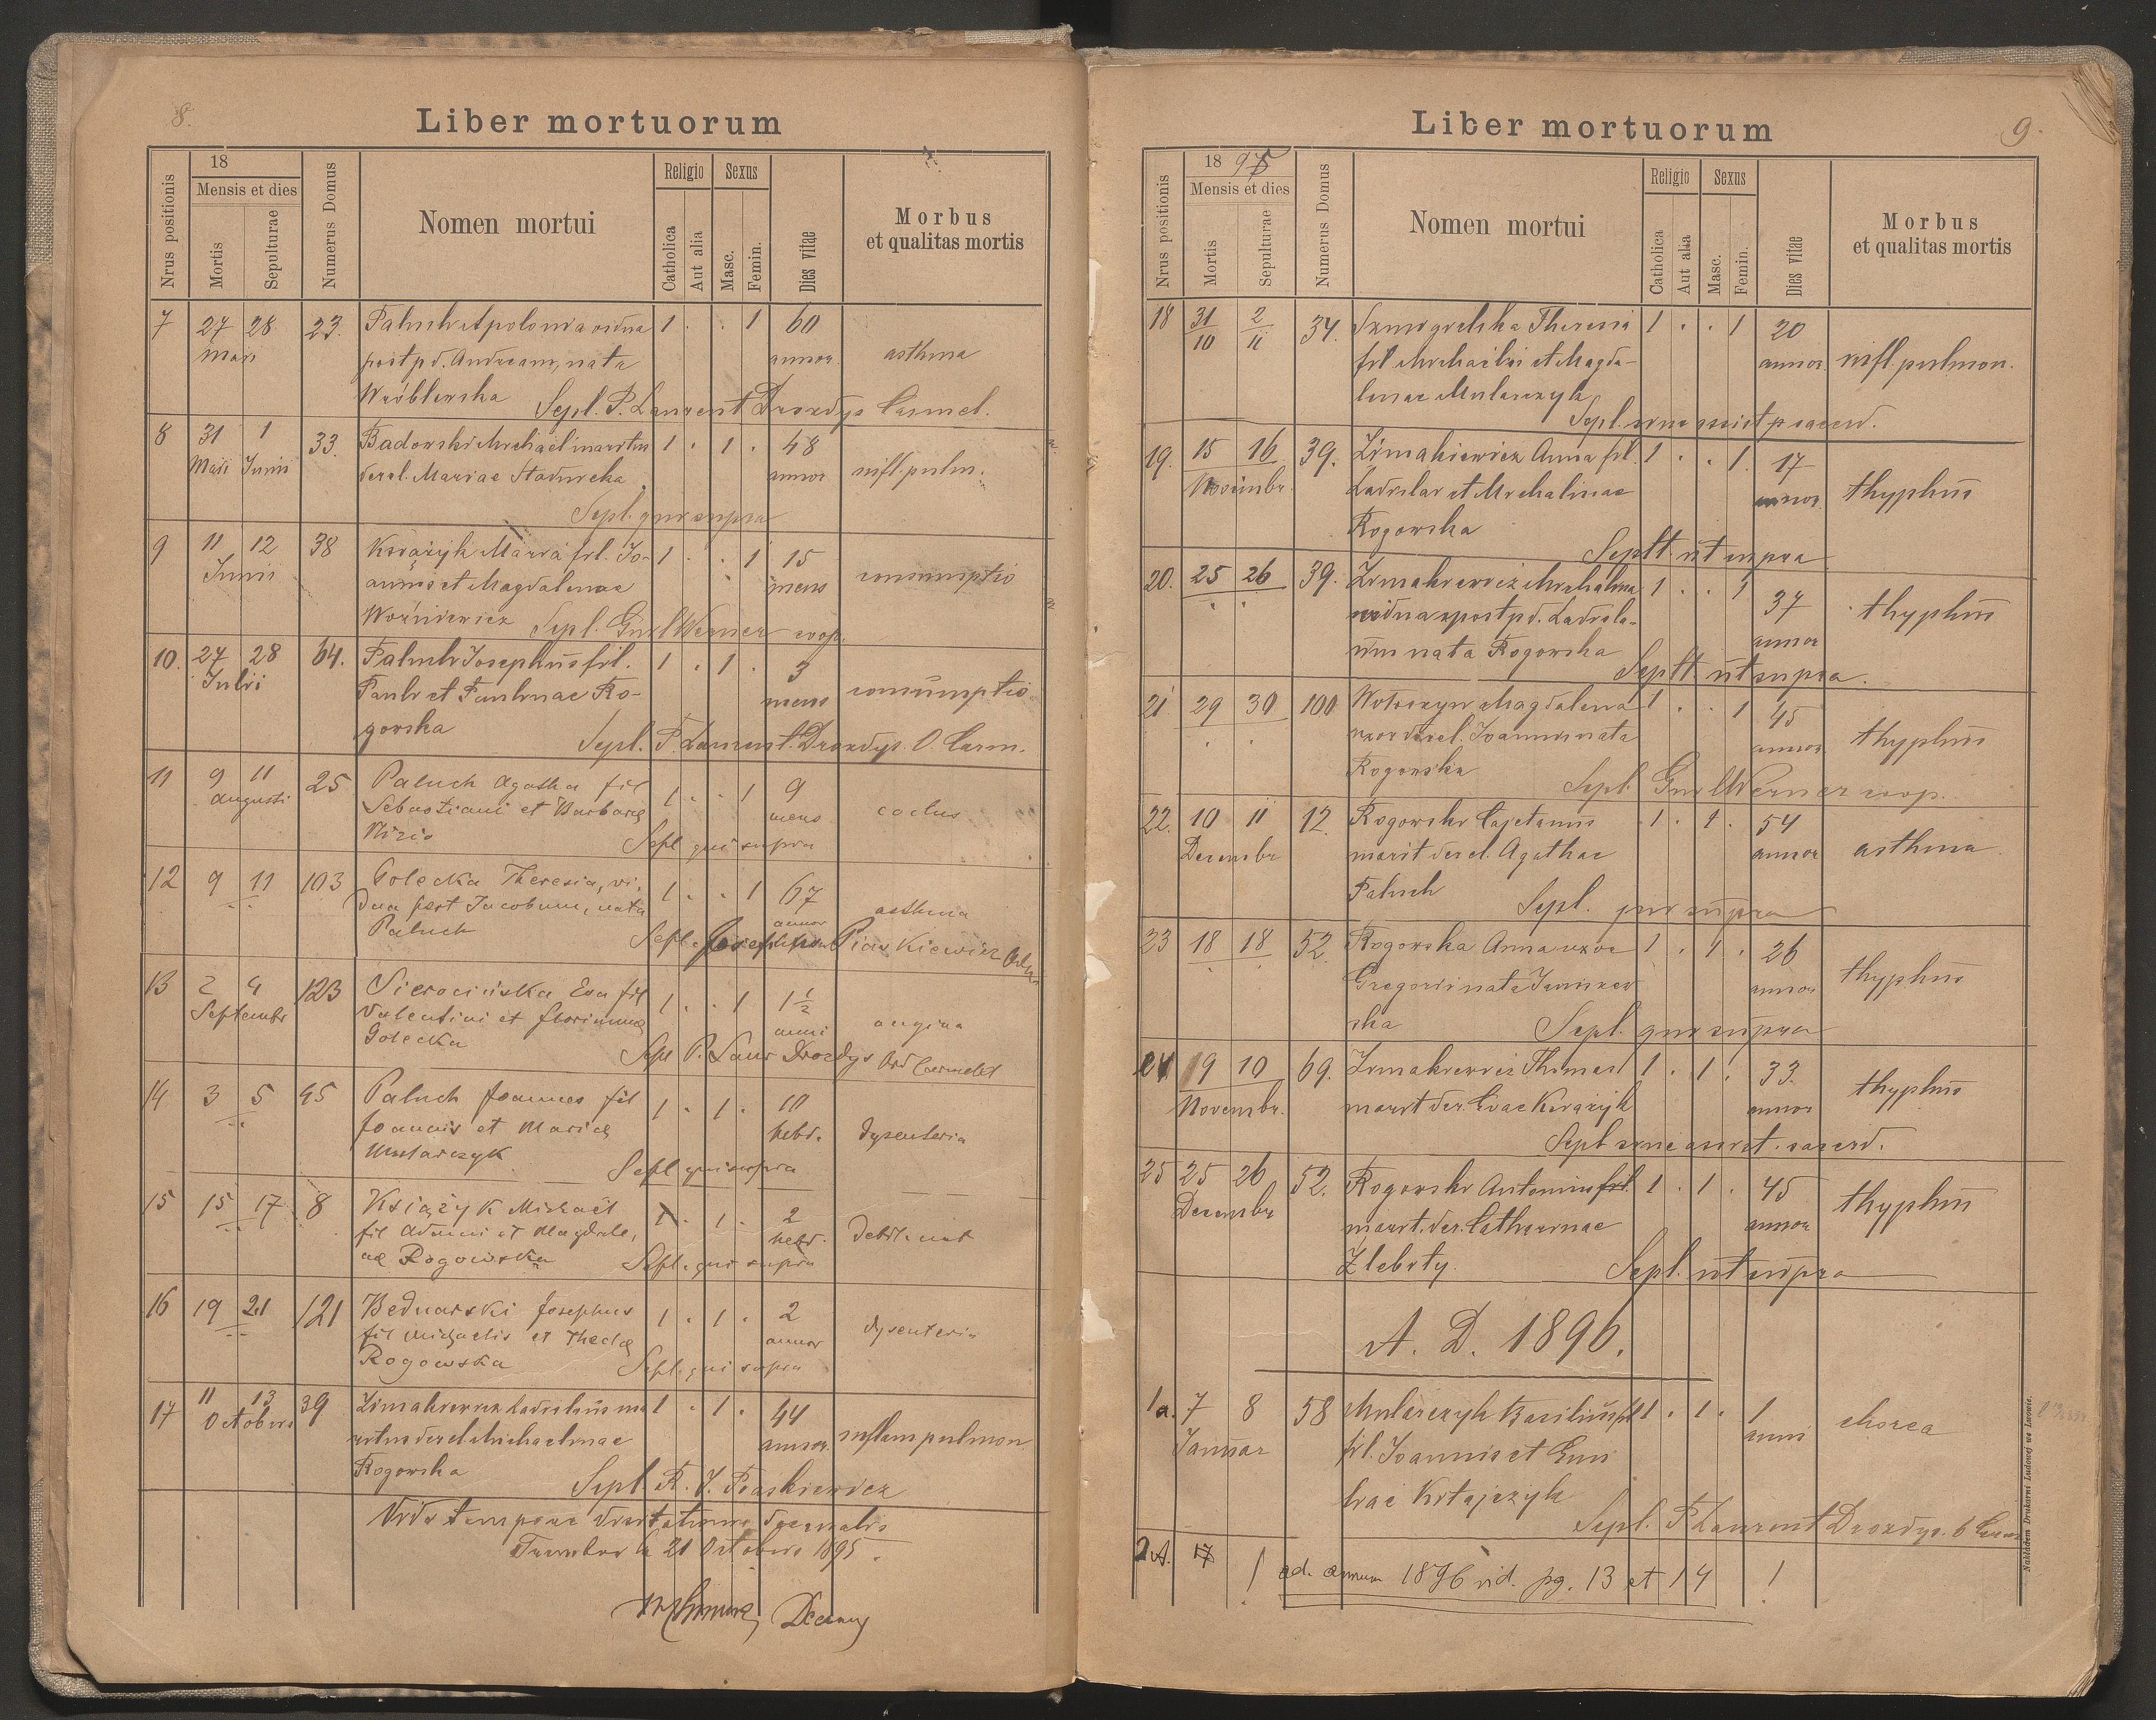 8.
Liber mortuorum
Nrus positionis
18
Mensis et dies
Mortis
Sepulturae
Numerus Domus
Nomen mortui
Religio
Catholica
Aut alia
Sexus
Masc.
Femin.
Dies vitae
Morbus
et qualitas mortis
7 27 28 23. Paluch Apolonia vidua 1 . . 1 60
Maii post p d. Andream, nata annor. asthma
Wróblewska Sepl. P. Laurent Drozdys Carmel.
8 31 1 33. Badowski Michael maritus 1 . 1 . 48
Maii Junii derel. Mariae Stadnicka annor infl. pulm.
Sepl. qui supra
9 11 12 38 Książyk Maria fil. Jo- 1 . . 1 15
Junii annis et Magdalenae mens consumptio
Woźniewicz Sepl. Guil Werner coop.
10. 27 28 64. Paluch Josephus fil. 1 . 1 . 3
Julii Pauli et Paulinae Ro- mens consumptio
gowska Sepl. P. Laurent. Drozdys. O. Carm.
11 9 11 25 Paluch Agatha fil 1 . . 1 9
Augusti Sebastiani et Barbarae mens coclus
Sepl qui supra
12 9 11 103 Golecka Theresia, vi, 1 . . 1 67
dua post Jacobum, nata annor asthma
Paluch Sepl. Piaskiewicz
13 2 4 123 Sierocińska Eva fil 1 . . 1 1 1/2
Septembr Valentini et Floriannae anni angina
Golecka Sepl P. Laur Drozdys Ord Carmelit
14 3 5 95 Paluch Joannes fil 1 . 1 . 10
Joannis et Mariae hebd. dysenteria
Mularczyk Sepl qui supra
15 15 17 8 Książyk Michaël 1 . 1 . 2
fil Adami et Magdale, hebd.
nae Rogowska Sepl. qui supra
16 19 21 121 Bednarski Josephus 1 . 1 . 2
fil Michaelis et Theclae annor dysenteria
Rogowska Sepl. qui supra
17 11 13 39 Zimakiewicz Ladislaus ma 1 . 1 . 44
Octobris ritus derel. Michaelinae annor. inflam pulmon
Rogowska Sepl. R. J. Piaskiewicz
Vidi tempore visitationis decanalis
21 Octobris 1895.
Decanus
9.
Liber mortuorum
Nrus positionis
18 95
Mensis et dies
Mortis
Sepulturae
Numerus Domus
Nomen mortui
Religio
Catholica
Aut alia
Sexus
Masc.
Femin.
Dies vitae
Morbus
et qualitas mortis
18 31/10 2/11 34. Szmigielska Theresia 1 . . 1 20
fil. Michaëlis et Magda- annor. infl. pulmon.
lenae Mularczyk
Sepl. sine assist p sacerd.
19. 15 16 39. Zimakiewicz Anna fil. 1 . . 1. 17
Novembr. Ladislai et Michalinae annor. thyphus
Rogowska
Seplt. ut supra
20. 25 26 39. Zimakiewicz Michalina 1 . . 1 37
vidua post p d. Ladisla- annor thyphus
um nata Rogowska
Seplt. ut supra.
21. 29 30 100 Wołoszyn Magdalena 1 . . 1 45
uxor derel. Joannis nata annor. thyphus
Rogowska
Sepl. Guil Werner coop.
22. 10 11 12. Rogowski Cajetanus 1 . 1 . 54
Decembr marit derel. Agathae annor asthma
Paluch Sepl. qui supra
23 18 18 52. Rogowska Anna uxor 1 . 1 . 26
Gregorii nata Janiszew annor thyphus
ska Sepl. qui supra
24 9 10 69. Zimakiewicz Thomas 1 . 1 . 33.
Novembr. marit der. Evae Książyk annor thyphus
Sepl sine assist. sacerd.
25 25 26 52. Rogowski Antonius fil. 1 . 1 . 45
Decembr marit. der. Catharinae annor thyphus
Zlebity. Sepl. ut supra
A. D. 1896.
1a. 7 8 58 Mularczyk Basilius fil 1 . 1 . 1
Januar fil. Joannis et Emi anni chorea
liae Kitajczyk
Sepl. P Laurent Drozdys. O Carm
2A. 17 ! ad. annum 1896 vid. pg. 13 et 14 !
Nakładem Drukarni Ludowej we Lwowie.